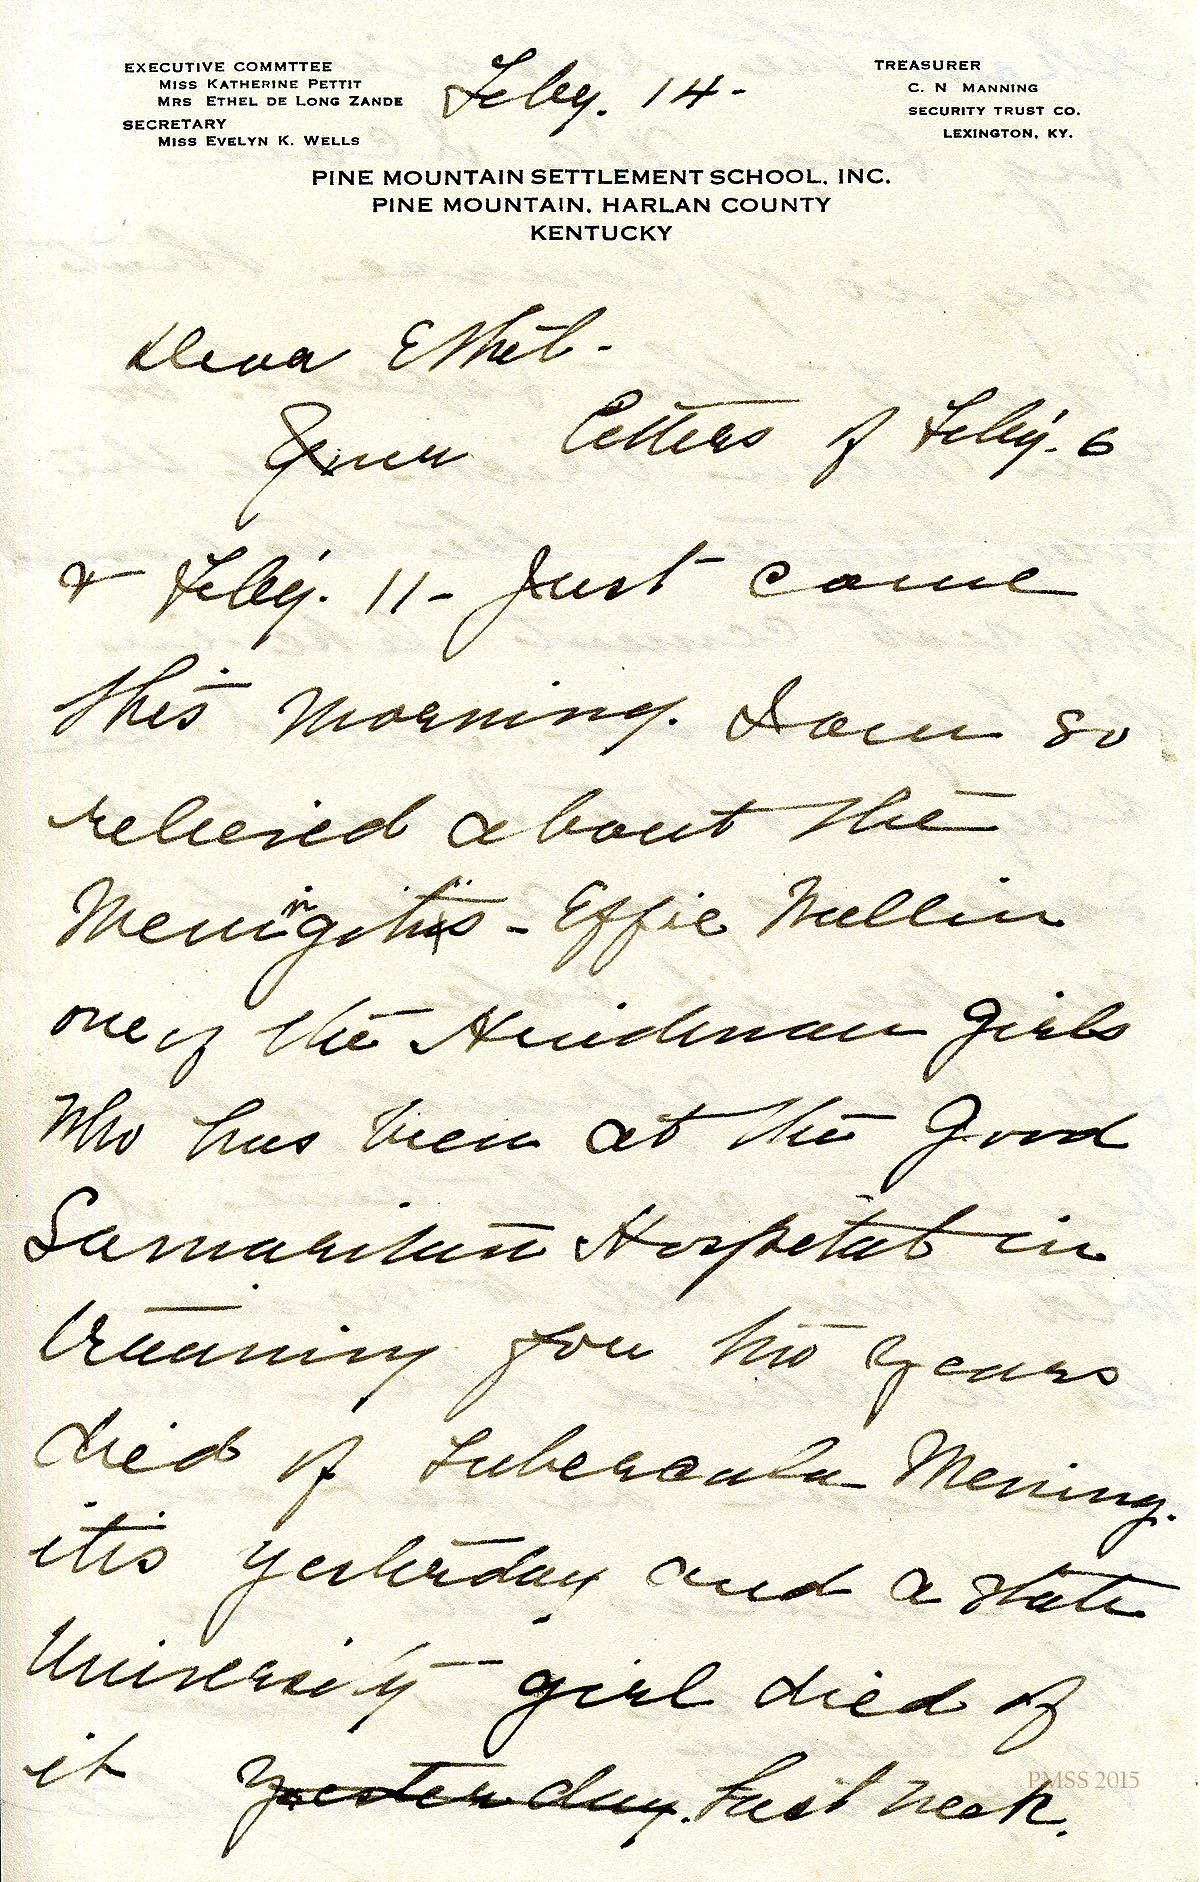 EXECUTIVE COMMTTEE
MISS KATHERINE PETTIT
MRS ETHEL DE LONG ZANDE
SECRETARY
MISS EVELYN K. WELLS
Feby. 14-
TREASURER
C. N MANNING
SECURITY TRUST CO.
LEXINGTON, KY.
PINE MOUNTAIN SETTLEMENT SCHOOL, INC.
PINE MOUNTAIN, HARLAN COUNTY
KENTUCKY
Dear Ethel-
Your letters of Feby. 6
& Feby. 11- Just came
this morning. I am so
relieved about the
Meningitis - Effie Mullin
one of the Hindman girls
who has been at the Good
Samaritan Hospital in
training for two years
died of Tubercula Mening.
itis yesterday and a State
University girl died of
it yesterday. last week.
PMSS 2015